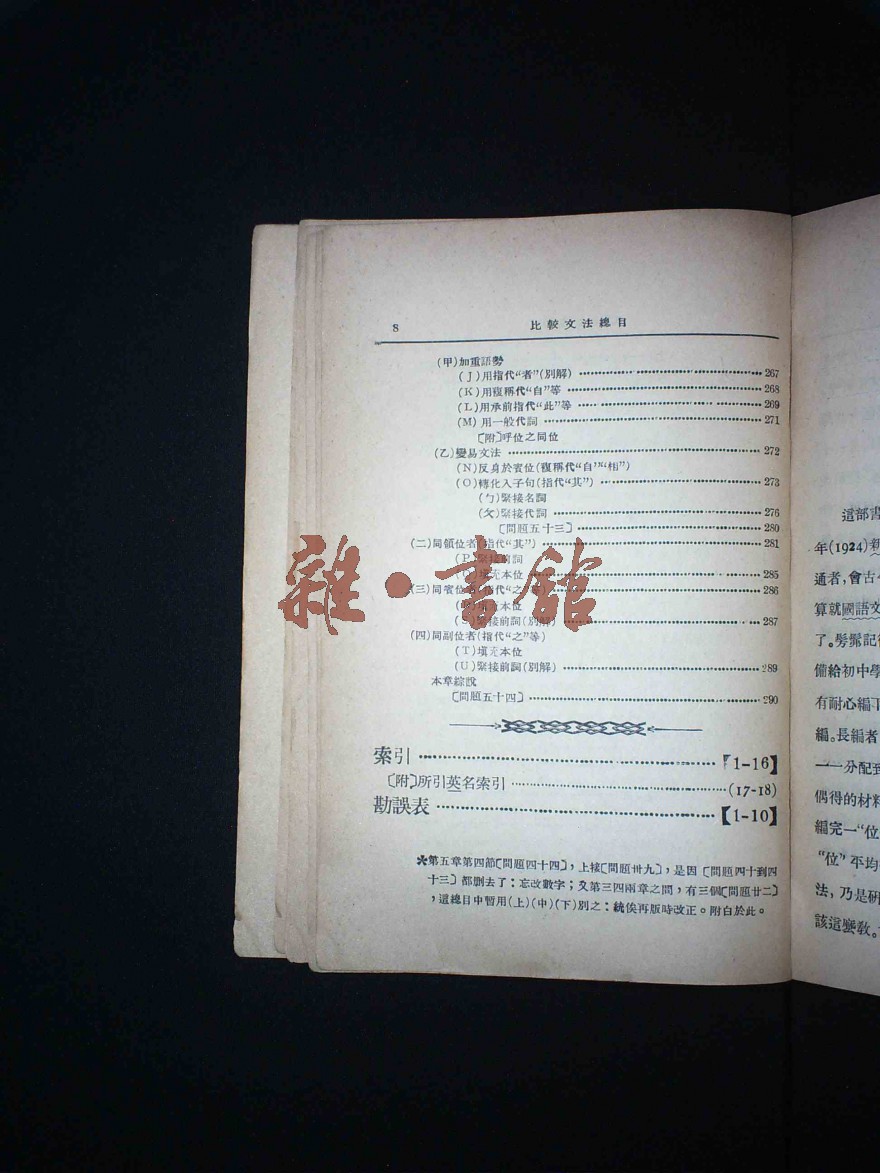 8 比較文法總目
(甲)加重語勢
(J)用指代“者”(別解) 267
(K)用複稱代“自”等 268
(L)用承前指代“此”等 269
(M)用一般代詞 271
〔附〕呼位之同位
(乙)變易文法 272
(N)反身於賓位(複稱代“自”“相”)
(O)轉化入子句(指代“其”) 273
(ㄅ)緊接名詞
(ㄆ)緊接代詞 276
〔問題五十三〕 280
(二)同領位者(指代“其”) 281
(P)緊接前詞
填充本位 285
(三)同賓位者(指代“之”等) 286
本位
緊接前詞(別解) 287
(四)同副位者(指代“之”等)
(T)填充本位
(U)緊接前詞(別解) 289
本章綜說
〔問題五十四〕 290
索引 【1-16】
〔附〕所引英名索引 (17-18)
勘誤表 【1-10】
*第五章第四節〔問題四十四〕,上接〔問題卅九〕,是因〔問題四十到四
十三〕都删去了:忘改數字;又第三四兩章之間,有三個〔問題廿二〕
,這總目中暫用(上)(中)(下)別之:統俟再版時改正。附白於此。
這部書
年(1924)新
通者,會古
算就國語文
了。髣髴記得
備給初中學
有耐心編
編。長編者
一一分配到
偶得的材料
編完一“位
“位”平均
法,乃是研
該這麼教。
雜·書館